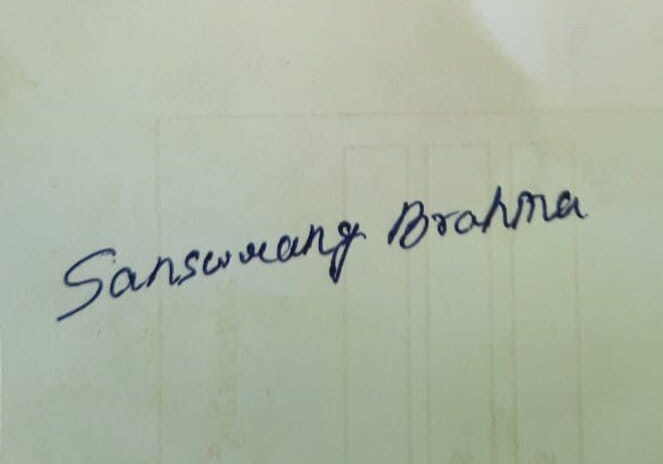 Sansuwrang Brahma